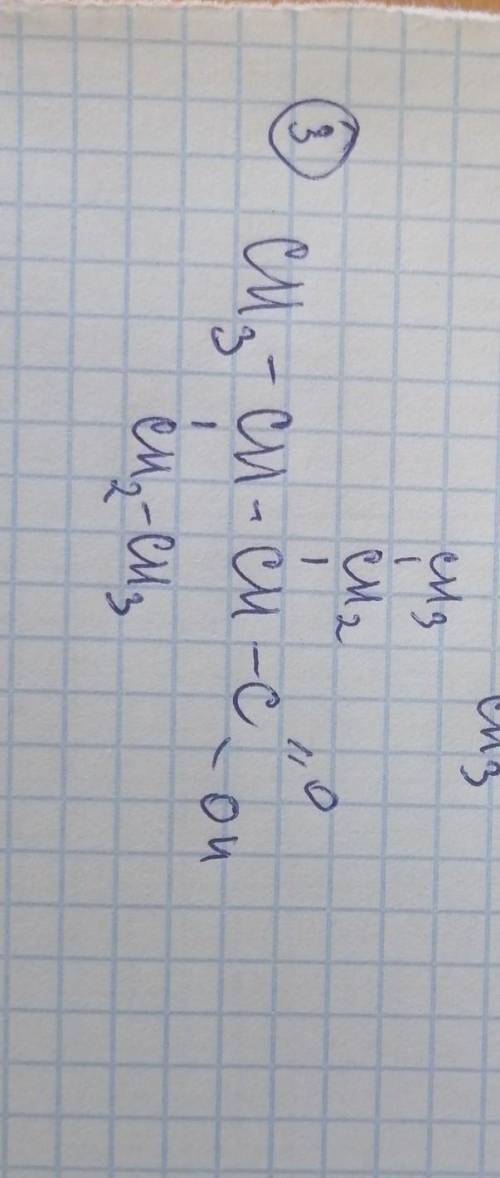 3
CH3
CH2
CH3 - CH - CH - C = O
- OH
CH2 - CH3
CH3